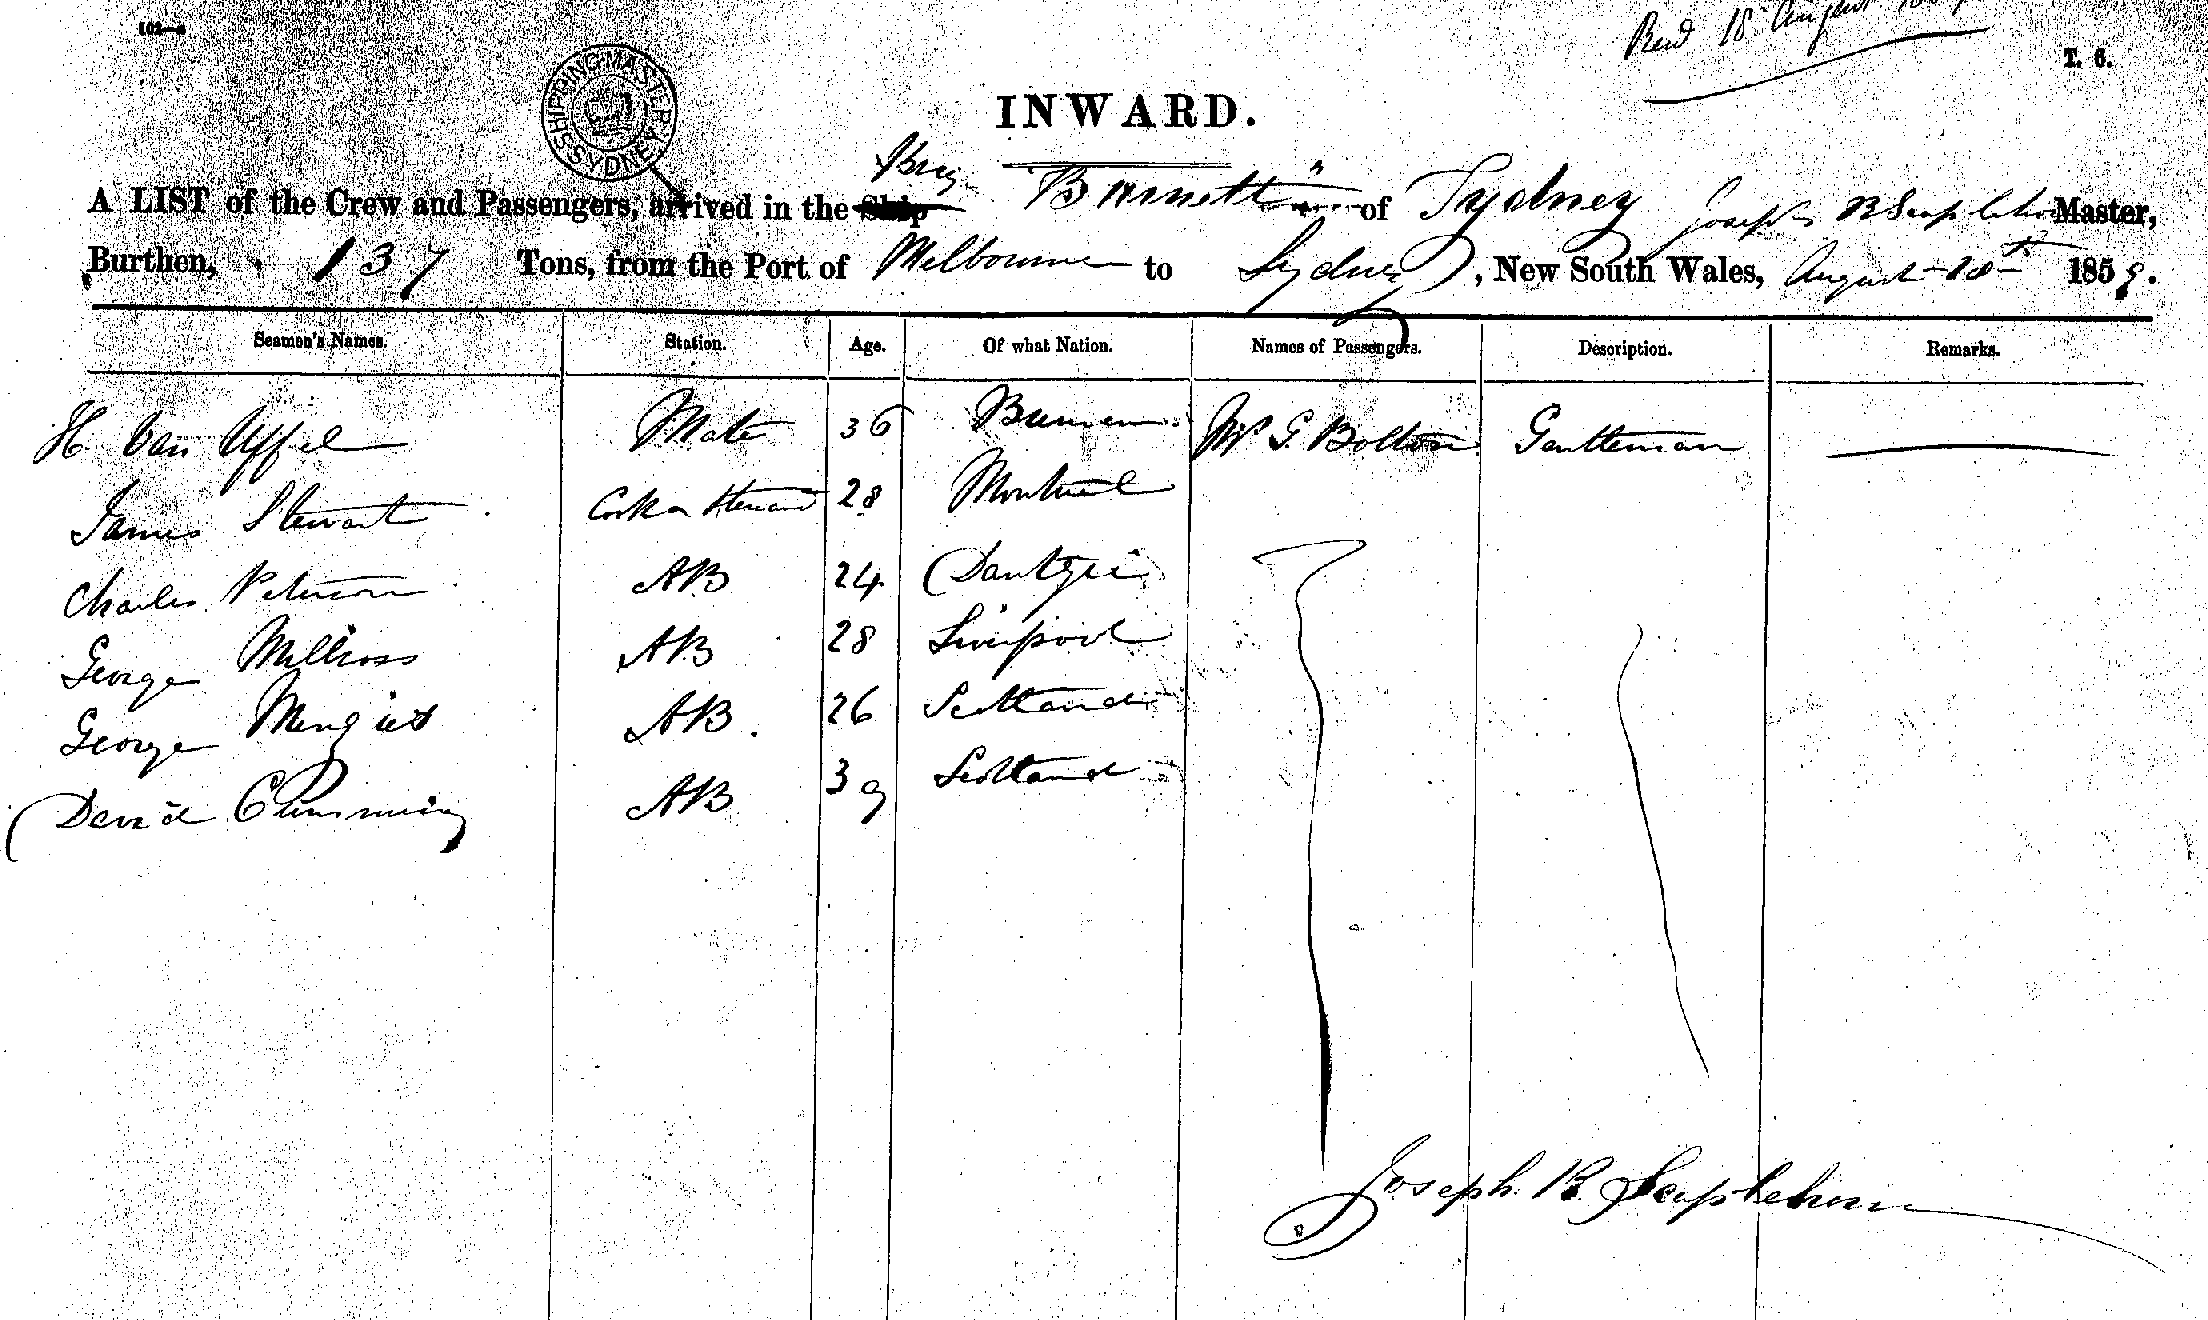 102—a
Recd 18 August
T. 6.
SHIPPING MASTER SYDNEY
INWARD.
Brig
A LIST of the Crew and Passengers, arrived in the Ship Burnett of Sydney Joseph B Seaplehorn Master,
Burthen, 137 Tons, from the Port of Melbourne to Sydney, New South Wales, August 18th 1859.
Seamen's Names. Station. Age. Of what Nation. Names of Passengers. Description. Remarks.
H. Van Uffel Mate 36 Bremen Mr G. Bolton Gentleman
James Stewart Cook & Steward 28 Montreal
Charles Peterson AB 24 Dantzic
George Millross AB 28 Liverpool
George AB 26 Scotland
David Cumming AB 39 Scotland
Joseph B. Seaplehorn